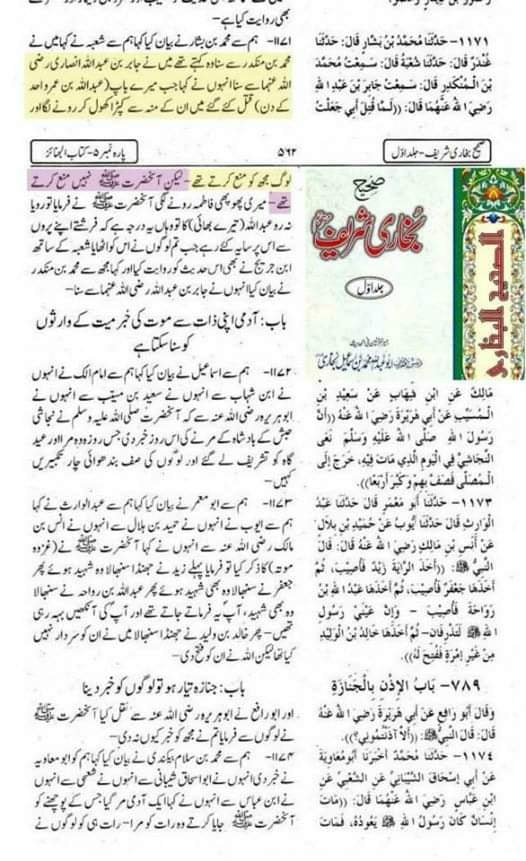 ۱۱۷۱- حَدَّثَنَا مُحَمَّدُ بْنُ بَشَّارٍ قَالَ: حَدَّثَنَا
غُنْدَرٌ قَالَ: حَدَّثَنَا شُعْبَةُ قَالَ: سَمِعْتُ مُحَمَّدَ
بْنَ الْمُنْكَدِرِ قَالَ: سَمِعْتُ جَابِرَ بْنَ عَبْدِ اللهِ
رَضِيَ اللهُ عَنْهُمَا قَالَ: ((لَمَّا قُتِلَ أَبِي جَعَلْتُ
بھی روایت کیا ہے-
۱۱۷۱- ہم سے محمد بن بشار نے بیان کیا کہا ہم سے شعبہ نے کہا میں نے
محمد بن منکدر سے سنا وہ کہتے تھے میں نے جابر بن عبداللہ انصاری رضی
اللہ عنھما سے سنا انہوں نے کہا جب میرے باپ (عبداللہ بن عمر واحد
کے دن) قتل کئے گئے میں ان کے منہ سے کپڑا کھول کر رونے لگا اور
صحیح بخاری شریف - جلد اوّل
۵۶۲
پارہ نمبر ۵- کتاب الجنائز
لوگ مجھ کو منع کرتے تھے- لیکن آنحضرت ﷺ نہیں منع کرتے
تھے- میری پھوپھی فاطمہ رونے لگی آنحضرت ﷺ نے فرمایا تو رویا
نہ رو عبداللہ (تیرے بھائی) کا تو وہاں یہ درجہ ہے کہ فرشتے اپنے پروں
سے اس پر سایہ کئے رہے جب تم لوگوں نے اس کو اٹھایا شعبہ کے ساتھ
ابن جریج نے بھی اس حدیث کو روایت کیا اور کہا مجھ سے محمد بن منکدر
نے بیان کیا انہوں نے جابر بن عبداللہ رضی اللہ عنھما سے سنا-
باب: آدمی اپنی ذات سے موت کی خبر میت کے وارثوں
کو سنا سکتا ہے
۱۱۷۲- ہم سے اسماعیل نے بیان کیا کہا ہم سے امام مالک نے انہوں
نے ابن شہاب سے انہوں نے سعید بن مسیب سے انہوں نے
ابو ہریرہ رضی اللہ عنہ سے کہ آنحضرت صلی اللہ علیہ وسلم نے نجاشی
حبش کے بادشاہ کے مرنے کی اس روز خبر دی جس روز وہ مرا اور عید
گاہ کو تشریف لے گئے اور لوگوں کی صف بندھوائی چار تکبیریں
کہیں-
۱۱۷۳- ہم سے ابو معمر نے بیان کیا کہا ہم سے عبدالوارث نے کہا
ہم سے ایوب نے انہوں نے حمید بن ہلال سے انہوں نے انس بن
مالک رضی اللہ عنہ سے انہوں نے کہا آنحضرت ﷺ نے (غزوہ
موتہ) کا ذکر کیا تو فرمایا پہلے زید نے جھنڈا سنبھالا وہ شہید ہوئے پھر
جعفر نے سنبھالا وہ بھی شہید ہوئے پھر عبداللہ بن رواحہ نے سنبھالا
وہ بھی شہید، آپ یہ فرماتے جاتے تھے اور آپ کی آنکھیں بہہ رہی
تھیں- پھر خالد بن ولید نے جھنڈا سنبھالا میں نے ان کو سردار نہیں
کیا تھا لیکن اللہ نے ان کو فتح دی-
باب: جنازہ تیار ہو تو لوگوں کو خبر دینا
اور ابو رافع نے ابو ہریرہ رضی اللہ عنہ سے نقل کیا آنحضرت ﷺ
نے لوگوں سے فرمایا تم نے مجھ کو خبر کیوں نہ دی-
۱۱۷۴- ہم سے محمد بن سلام بیکندی نے بیان کیا کہا ہم کو ابو معاویہ
نے خبر دی انہوں نے ابو اسحاق شیبانی سے انہوں نے شعبی سے انہوں
نے ابن عباس سے انہوں نے کہا ایک آدمی مر گیا جس کے پوچھنے کو
آنحضرت ﷺ جایا کرتے وہ رات کو مرا- رات ہی کو لوگوں نے
صحیح
بخاری شریف
جلد اوّل
ابو عبداللہ محمد بن اسماعیل بخاری
الصحيح البخاري
مَالِكٌ عَنِ ابْنِ شِهَابٍ عَنْ سَعِيدِ بْنِ
الْمُسَيَّبِ عَنْ أَبِي هُرَيْرَةَ رَضِيَ اللهُ عَنْهُ ((أَنَّ
رَسُولَ اللهِ صَلَّى اللهُ عَلَيْهِ وَسَلَّمَ نَعَى
النَّجَاشِيَّ فِي الْيَوْمِ الَّذِي مَاتَ فِيهِ، خَرَجَ إِلَى
الْمُصَلَّى فَصَفَّ بِهِمْ وَكَبَّرَ أَرْبَعًا)).
۱۱۷۳- حَدَّثَنَا أَبُو مَعْمَرٍ قَالَ حَدَّثَنَا عَبْدُ
الْوَارِثِ قَالَ حَدَّثَنَا أَيُّوبُ عَنْ حُمَيْدِ بْنِ هِلَالٍ
عَنْ أَنَسِ بْنِ مَالِكٍ رَضِيَ اللهُ عَنْهُ قَالَ: قَالَ
النَّبِيُّ ﷺ: ((أَخَذَ الرَّايَةَ زَيْدٌ فَأُصِيبَ، ثُمَّ
أَخَذَهَا جَعْفَرٌ فَأُصِيبَ، ثُمَّ أَخَذَهَا عَبْدُ اللهِ بْنُ
رَوَاحَةَ فَأُصِيبَ - وَإِنَّ عَيْنَيْ رَسُولِ
اللهِ ﷺ لَتَذْرِفَانِ- ثُمَّ أَخَذَهَا خَالِدُ بْنُ الْوَلِيدِ
مِنْ غَيْرِ إِمْرَةٍ فَفُتِحَ لَهُ)).
۷۸۹- بَابُ الإِذْنِ بِالْجَنَازَةِ
وَقَالَ أَبُو رَافِعٍ عَنْ أَبِي هُرَيْرَةَ رَضِيَ اللهُ عَنْهُ
قَالَ: قَالَ النَّبِيُّ ﷺ: ((أَلَا آذَنْتُمُونِي؟)).
۱۱۷٤- حَدَّثَنَا مُحَمَّدٌ أَخْبَرَنَا أَبُو مُعَاوِيَةَ
عَنْ أَبِي إِسْحَاقَ الشَّيْبَانِيِّ عَنِ الشَّعْبِيِّ عَنِ
ابْنِ عَبَّاسٍ رَضِيَ اللهُ عَنْهُمَا قَالَ: ((مَاتَ
إِنْسَانٌ كَانَ رَسُولُ اللهِ ﷺ يَعُودُهُ، فَمَاتَ